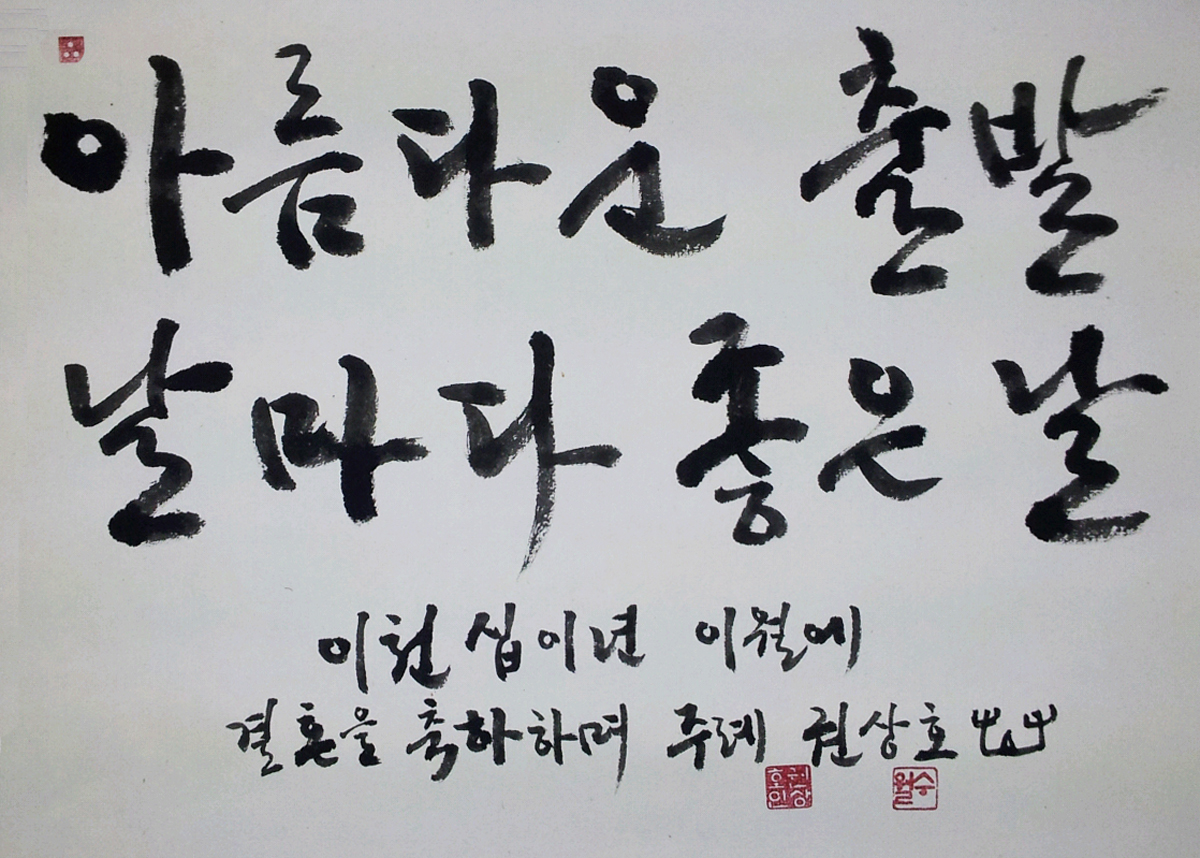 아름다운 출발
날마다 좋은 날
이천십이년 이월에
결혼을 축하하며 주례 권상호
권상호인
승월